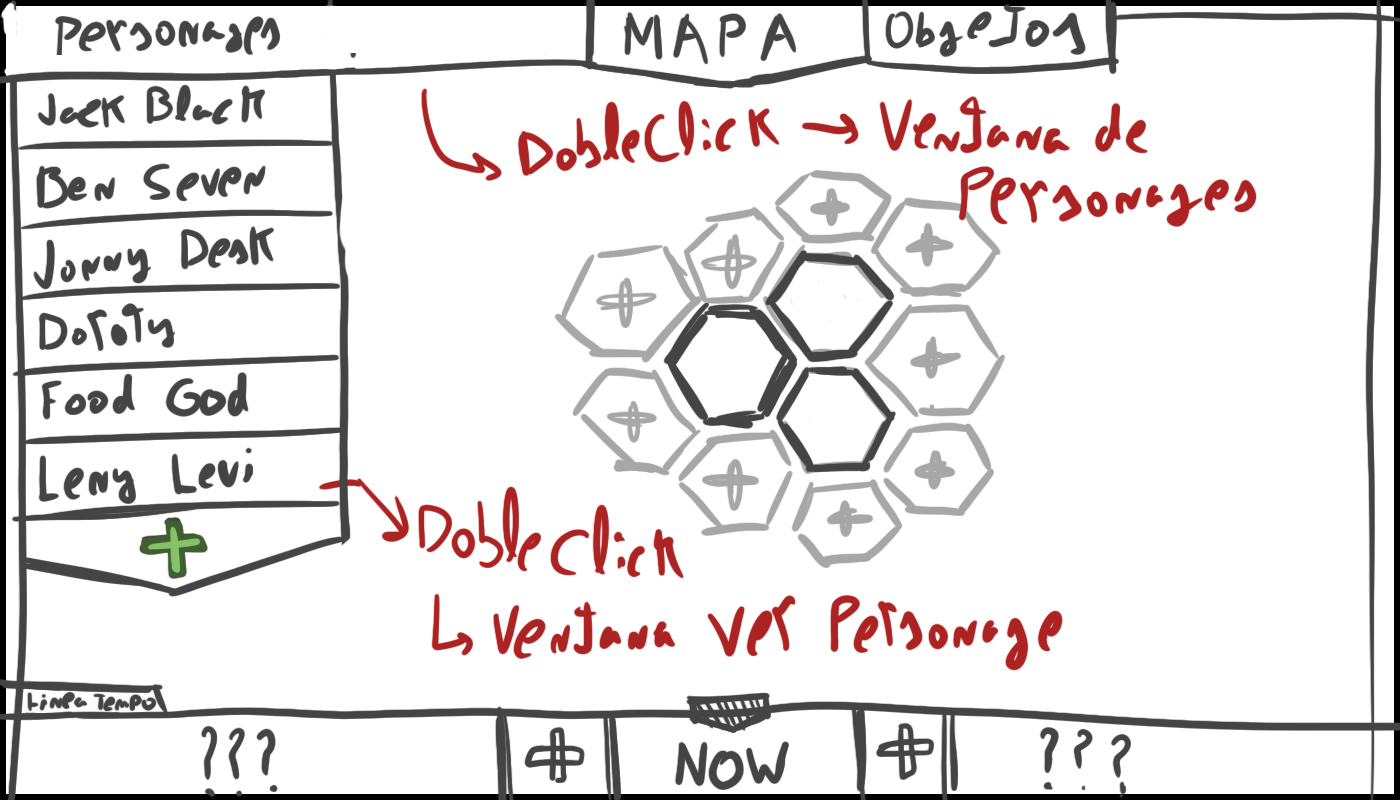 Personages
MAPA
Obgejos
Jack Black
Ben Seven
Jonny Desk
Doroty
Food God
Leny Levi
Doble Click → Ventana de
Personages
Doble Click
↳ Ventana Ver Personage
Linea Tempo
???
+
NOW
+
???